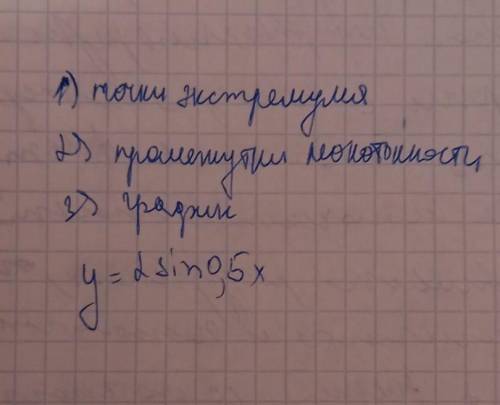 1) точки экстремумя
2) промежутки монотонности
3) график
y = 2 sin 0,5x